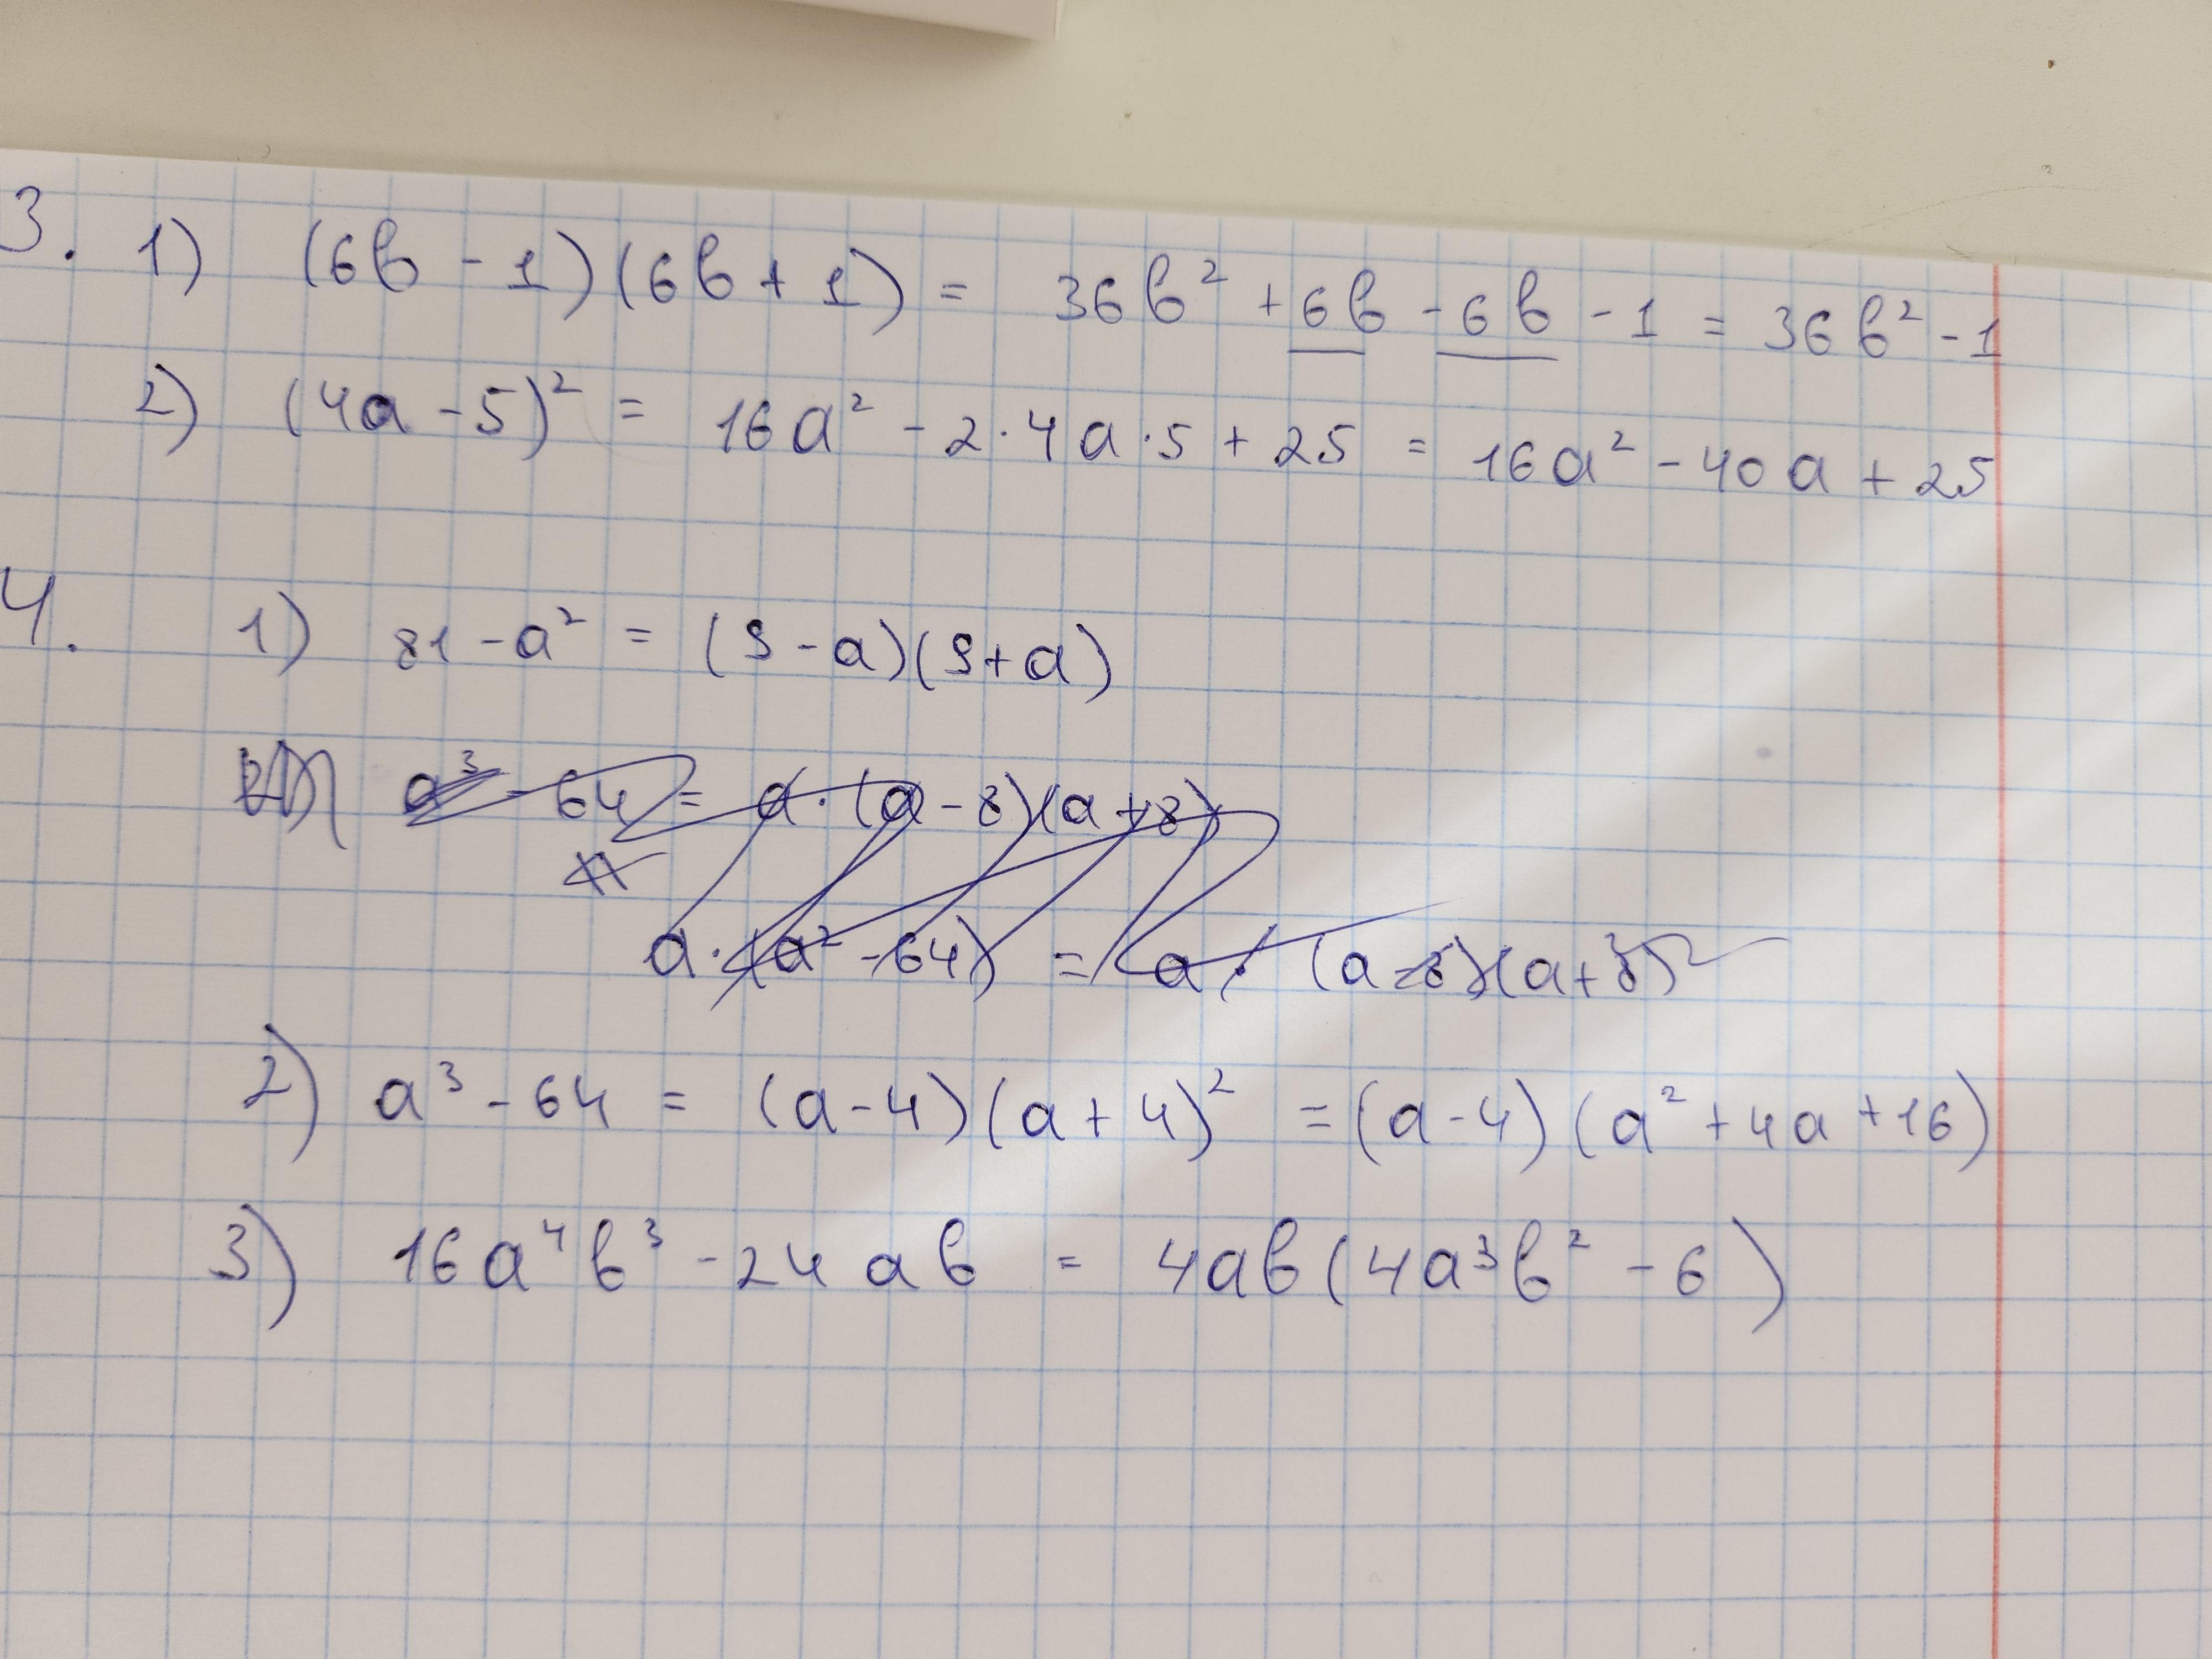 3. 1) (6b - 1)(6b + 1) = 36b² + 6b - 6b - 1 = 36b² - 1
2) (4a - 5)² = 16a² - 2·4a·5 + 25 = 16a² - 40a + 25
4. 1) 81 - a² = (9 - a)(9 + a)
a³ - 64 = a·(a - 8)(a + 8)
a·(a² - 64) = a·(a - 8)(a + 8)²
2) a³ - 64 = (a - 4)(a + 4)² = (a - 4)(a² + 4a + 16)
3) 16a⁴b³ - 24ab = 4ab(4a³b² - 6)